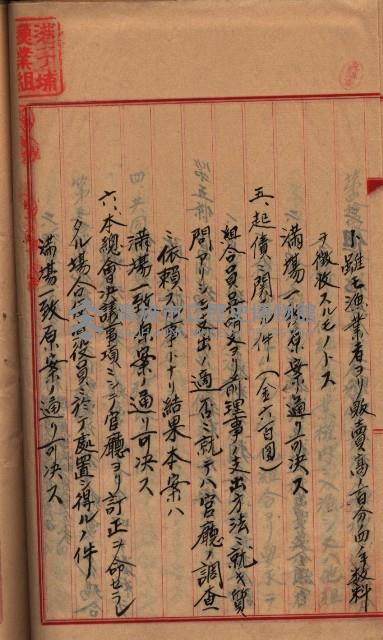 ト雖モ漁業者ヨリ販賣高ノ百分ノ四手数料
ヲ徴收スルモノトス
満場一致原案通リ可決ス
五、起債ニ関スル件(金六百圓)
組合員呂清文ヨリ前理事ノ支出方法ニ就キ質
問アリシモ支出ノ適否ニ就テハ官廳ノ調査
ニ依頼スル事トナリ結果本案ハ
満場一致原案ノ通リ可決ス
六、本總會決議事項ニシテ官廳ヨリ訂正ヲ命セラレ
タル場合ハ役員ニ於テ處置シ得ルノ件
満場一致原案ノ通リ可決ス
港子埔
漁業組